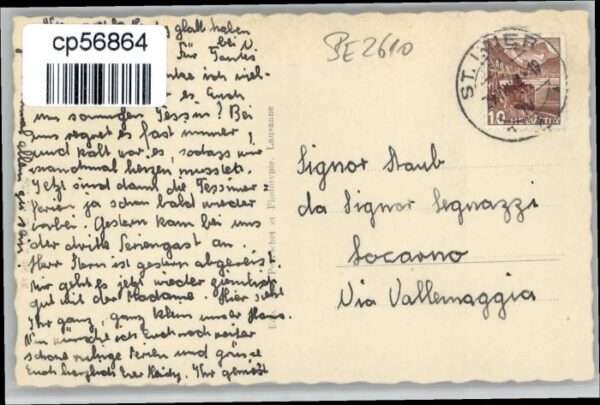 cp56864
PE 2610
ST. IMIER
10
HELVETIA
glatt haben
bei
Für Tantes
ich viel-
es Euch
im sonnigen Tessin? Bei
uns regnet es fast immer,
und kalt war es, sodass wir
manchmal heizen mussten.
Jetzt sind dann die Tessiner-
ferien ja schon bald wieder
vorbei. Gestern kam bei uns
der dritte Feriengast an.
Herr Kern ist gestern abgereist.
Mir geht es jetzt wieder ziemlich
gut mit der Madame. Hier seht
Ihr ganz, ganz klein unser Haus.
Nun wünsche ich Euch noch weiter
schöne ruhige Ferien und grüsse
Euch herzlich Eure Heidy. Ihr genießt
et Phototypie, Lausanne
Signor Staub
da Signor Legnazzi
Locarno
Via Vallemaggia